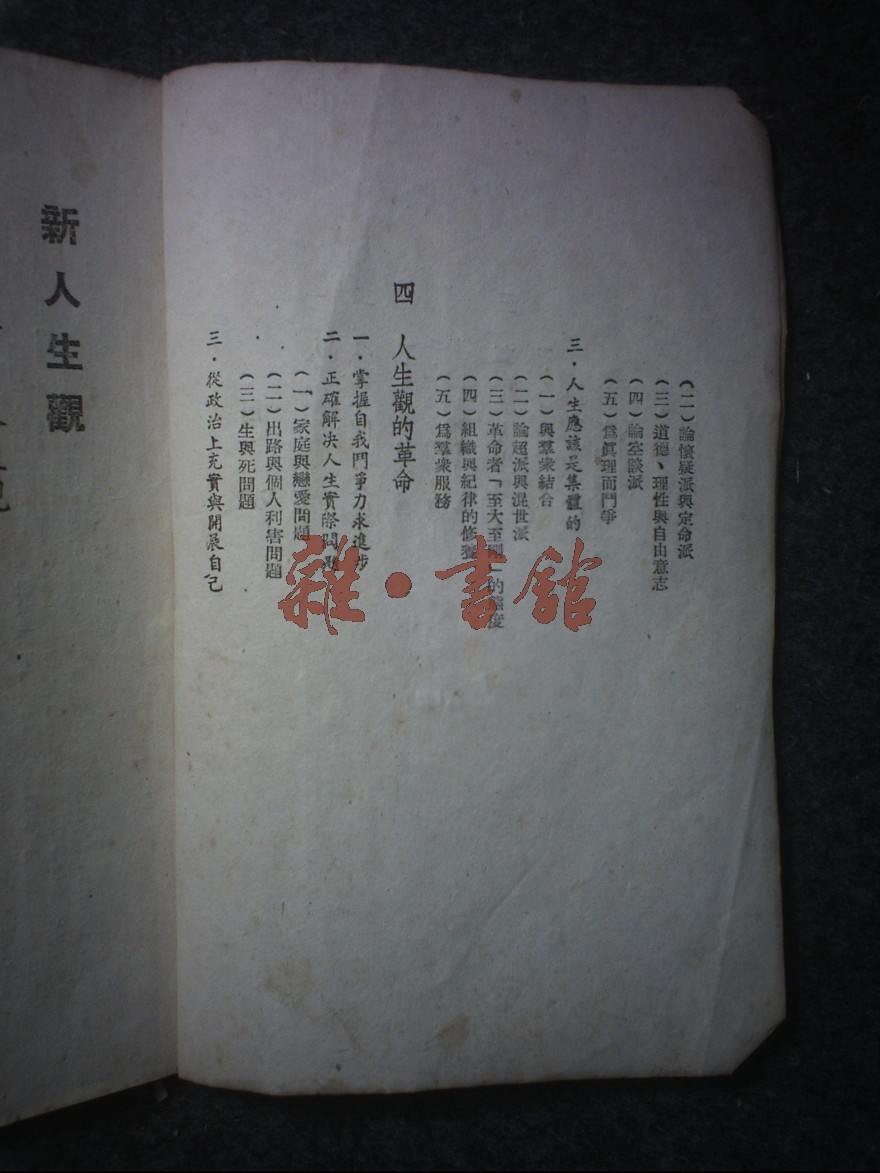 （二）論懷疑派與定命派
（三）道德、理性與自由意志
（四）論空談派
（五）爲眞理而鬥爭
三・人生應該是集體的
（一）與羣衆結合
（二）論超派與混世派
（三）革命者「至大至剛」的態度
（四）組織與紀律的修養
（五）爲羣衆服務
四　人生觀的革命
一・掌握自我鬥爭力求進步
二・正確解决人生實際問題
（一）家庭與戀愛問題
（二）出路與個人利害問題
（三）生與死問題
三・從政治上充實與開展自己
新人生觀
雜・書館